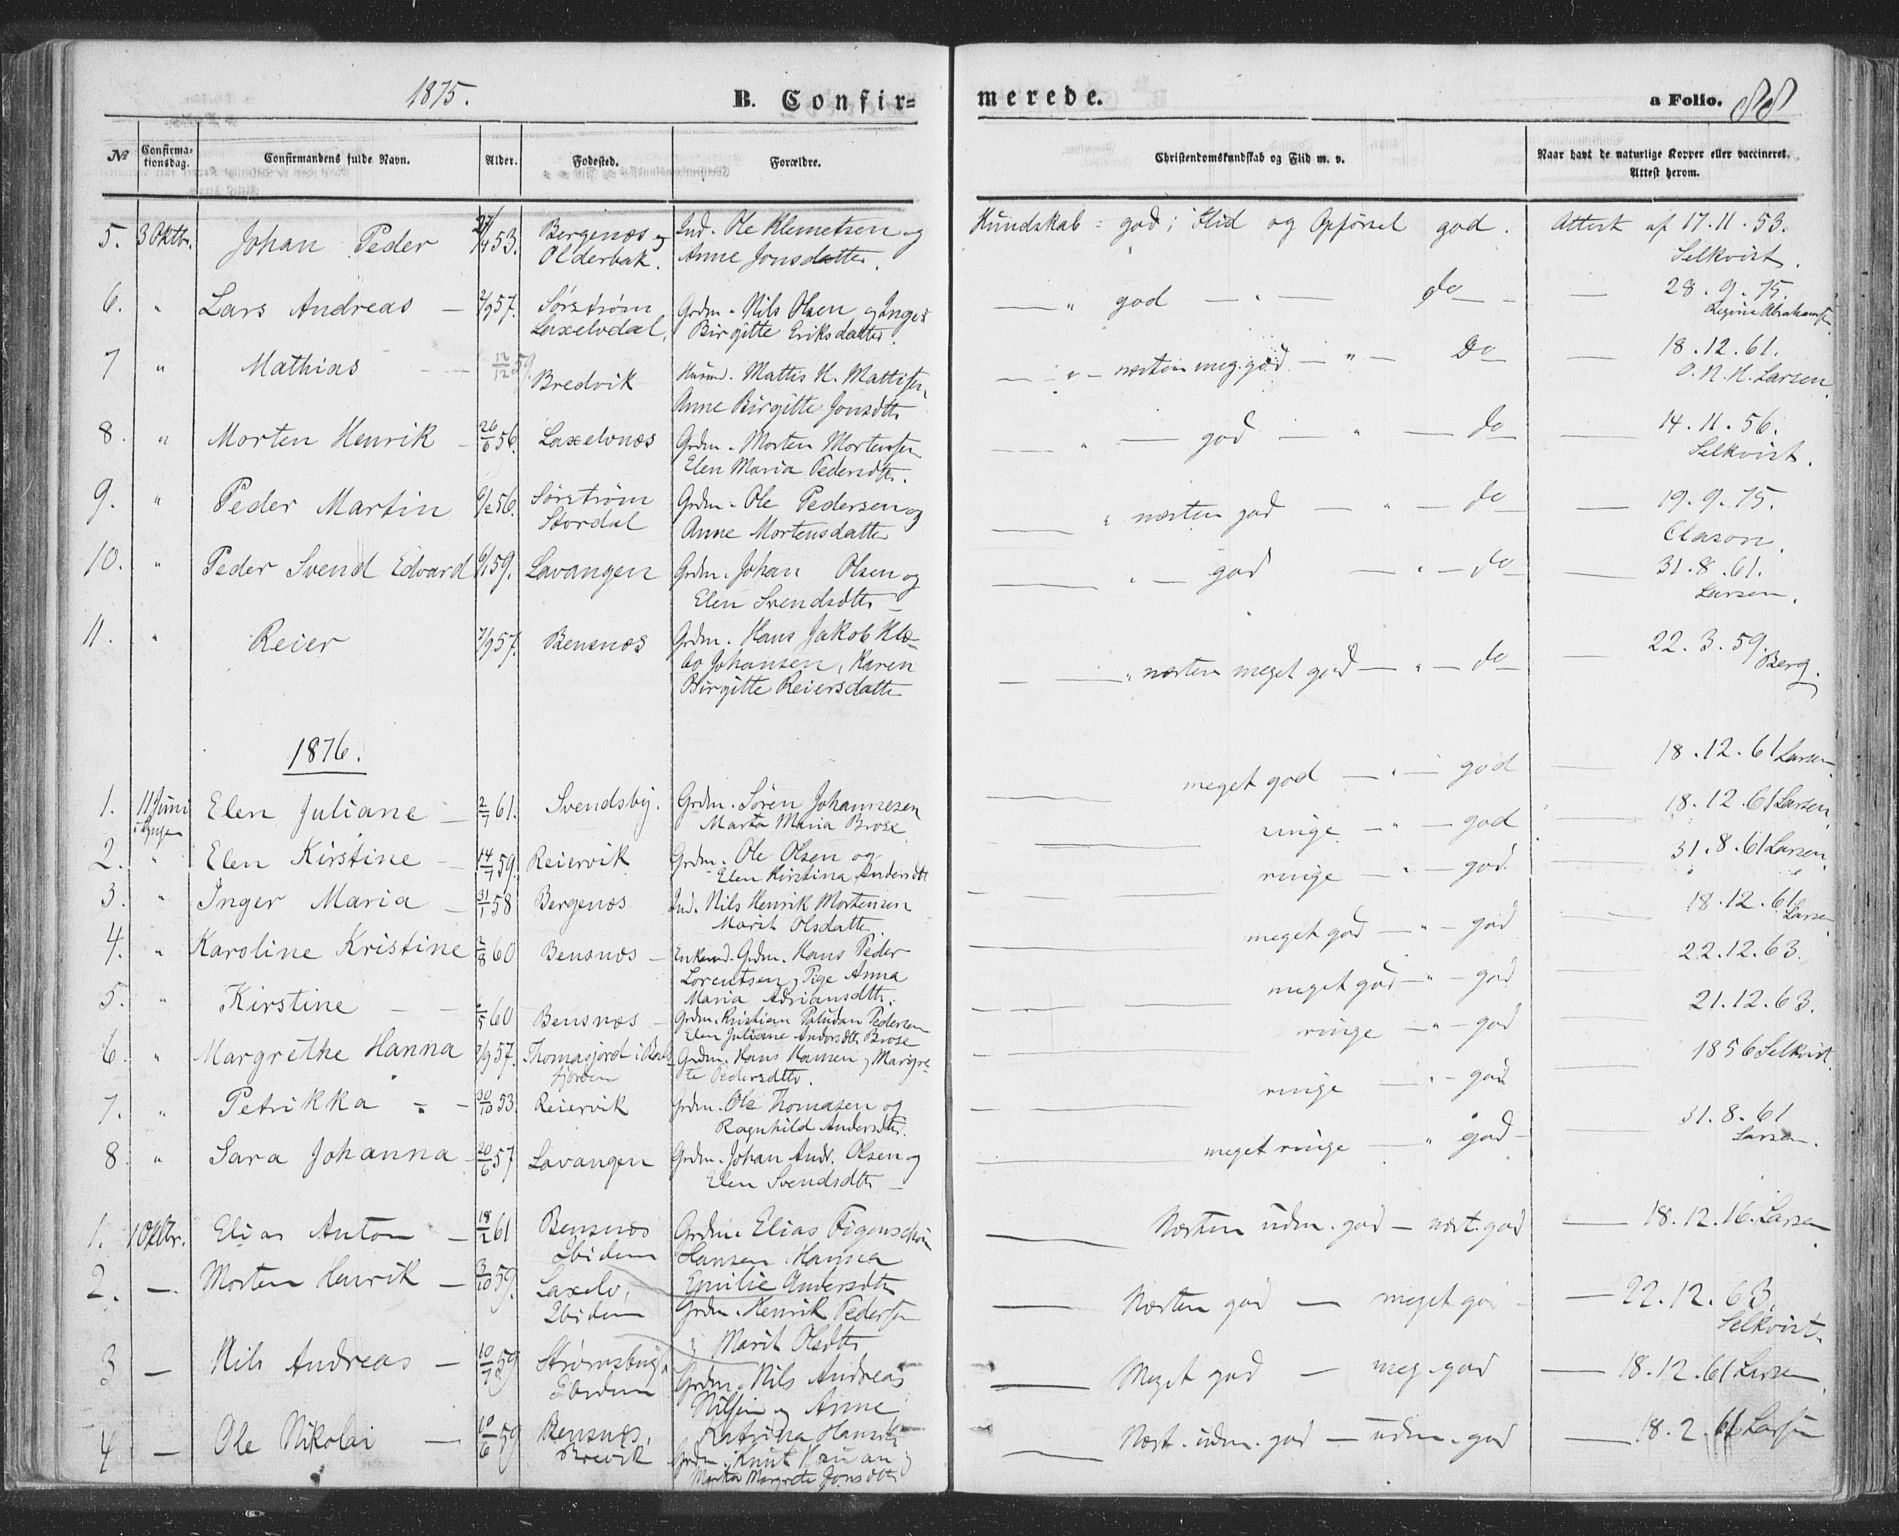 1875.
B. Confir=
merede.
a Folio. 88
№
Confirma-
tionsdag.
Confirmandens fulde Navn.
Alder.
Fødested.
Forældre.
Christendomskundskab og Flid m. v.
Naar havt de naturlige Kopper eller vaccineret.
Attest herom.
5. 3 Oktbr. Johan Peder 53. Bergenæs og Ind. Ole Klemetsen og Kundskab : god ; Flid og Opførsel god. Attest af 17.11.53.
Olderbak. Anne Jonsdatter. Selkvist.
6. " Lars Andreas — 2/9 57. Sørstrøm Grdm. Nils Olsen og Inger — " god — " — do — 28.9.75.
Laxelvdal. Birgitte Eriksdatter.
7 " Mathias 12/12 59. Bredvik Husmd. Mattis H. — " — næsten meg. god — " — Do — 18.12.61.
Anne Birgitte Jonsdtr O. N. H. Larsen
8. " Morten Henrik — 26/6 56. Laxelvnæs Grdm. Morten Mortensen — " — god — " — do — 14.11.56.
Elen Maria Pedersdtr. Selkvist.
9. " Peder Martin 56. Sørstrøm Grdm. Ole Pedersen og — " næsten god — " — do — 19.9.75.
Stordal Anne Mortensdatter Clason.
10. " Peder Svend Edvard 59. Lavangen Grdm. Johan Olsen og — " — god — " — do — 31.8.61.
Elen Svendsdtr — Larsen.
11. " Reier 7/9 57. Bensnæs Grdm. Hans Jakob Klæ- — " næsten meget god — " — do — 22.3.59.
bo Johansen, Karen Berg.
Birgitte Reiersdatter
1876.
1. 11 Juni Elen Juliane — 2/7 61. Svendsby. Grdm. Søren Johannesen — meget god — " — god — 18.12.61 Larsen
Marta Maria Brose
2. " Elen Kirstine — 14/7 59. Reiervik Grdm. Ole Olsen og — ringe — " — god — 18.12.61 Larsen
Elen Kirstina Andersdtr
3. " Inger Maria — 31/1 58 Bergenæs Ind. Nils Henrik Mortensen — ringe — " — god. — 31.8.61 Larsen
Marit Olsdatter.
4. " Karoline Kristine 2/8 60 Bensnæs — Enkemd. Grdm. Hans Peder — meget god — " — god — 18.12.61 Larsen
Lorentsen, Pige Anna
Maria Adriansdtr.
5. " Kirstine — — 60 Bensnæs — Grdm. Kristian Paludan Pedersen — meget god — " — god — 22.12.63.
Elen Juliane Andorsdtr Brose
6. " Margrethe Hanna 57. Thomasjord i Bals- Grdm. Hans Hansen, Margre- — ringe — " — god — 21.12.63.
fjorden te Pedersdtr.
7. " Petrikka — — 30/10 53. Reiervik Grdm. Ole Thomasen og — ringe — " — god — 1856 Selkvist.
Ragnhild Andersdtr.
8. " Sara Johanna — 20/6 57 Lavangen Grdm. Johan Andr. Olsen og — meget ringe — " god — 31.8.61
Elen Svendsdtr — Larsen.
1. 1 Oktbr. Elias Anton — 18/2 61 Bensnæs Grdm. Elias Figenschou — Næsten udm. god — næst. god — 18.12.16. Larsen
Ibidem Hansen. Hanna
Emilie Andersdtr
2. — Morten Henrik — 3/10 59. Laxelv, Grdm. Henrik Pedersen — Næsten god — meget god — 22.12.63.
Ibidem og Marit Olsdtr Selkvist.
3 — Nils Andreas — 10/7 59 Grdm. Nils Andreas — Meget god — meg. god — 18.12.61 Larsen
Ibidem Nilsen og Anne
Katrina Hansdtr
4 — Ole Nikolai — 10/6 59 Bensnæs, Grdm. Knut — Næst. udm. god — udm. god — 18.2.61 Larsen
Brevik Marta Margrete Jonsdtr